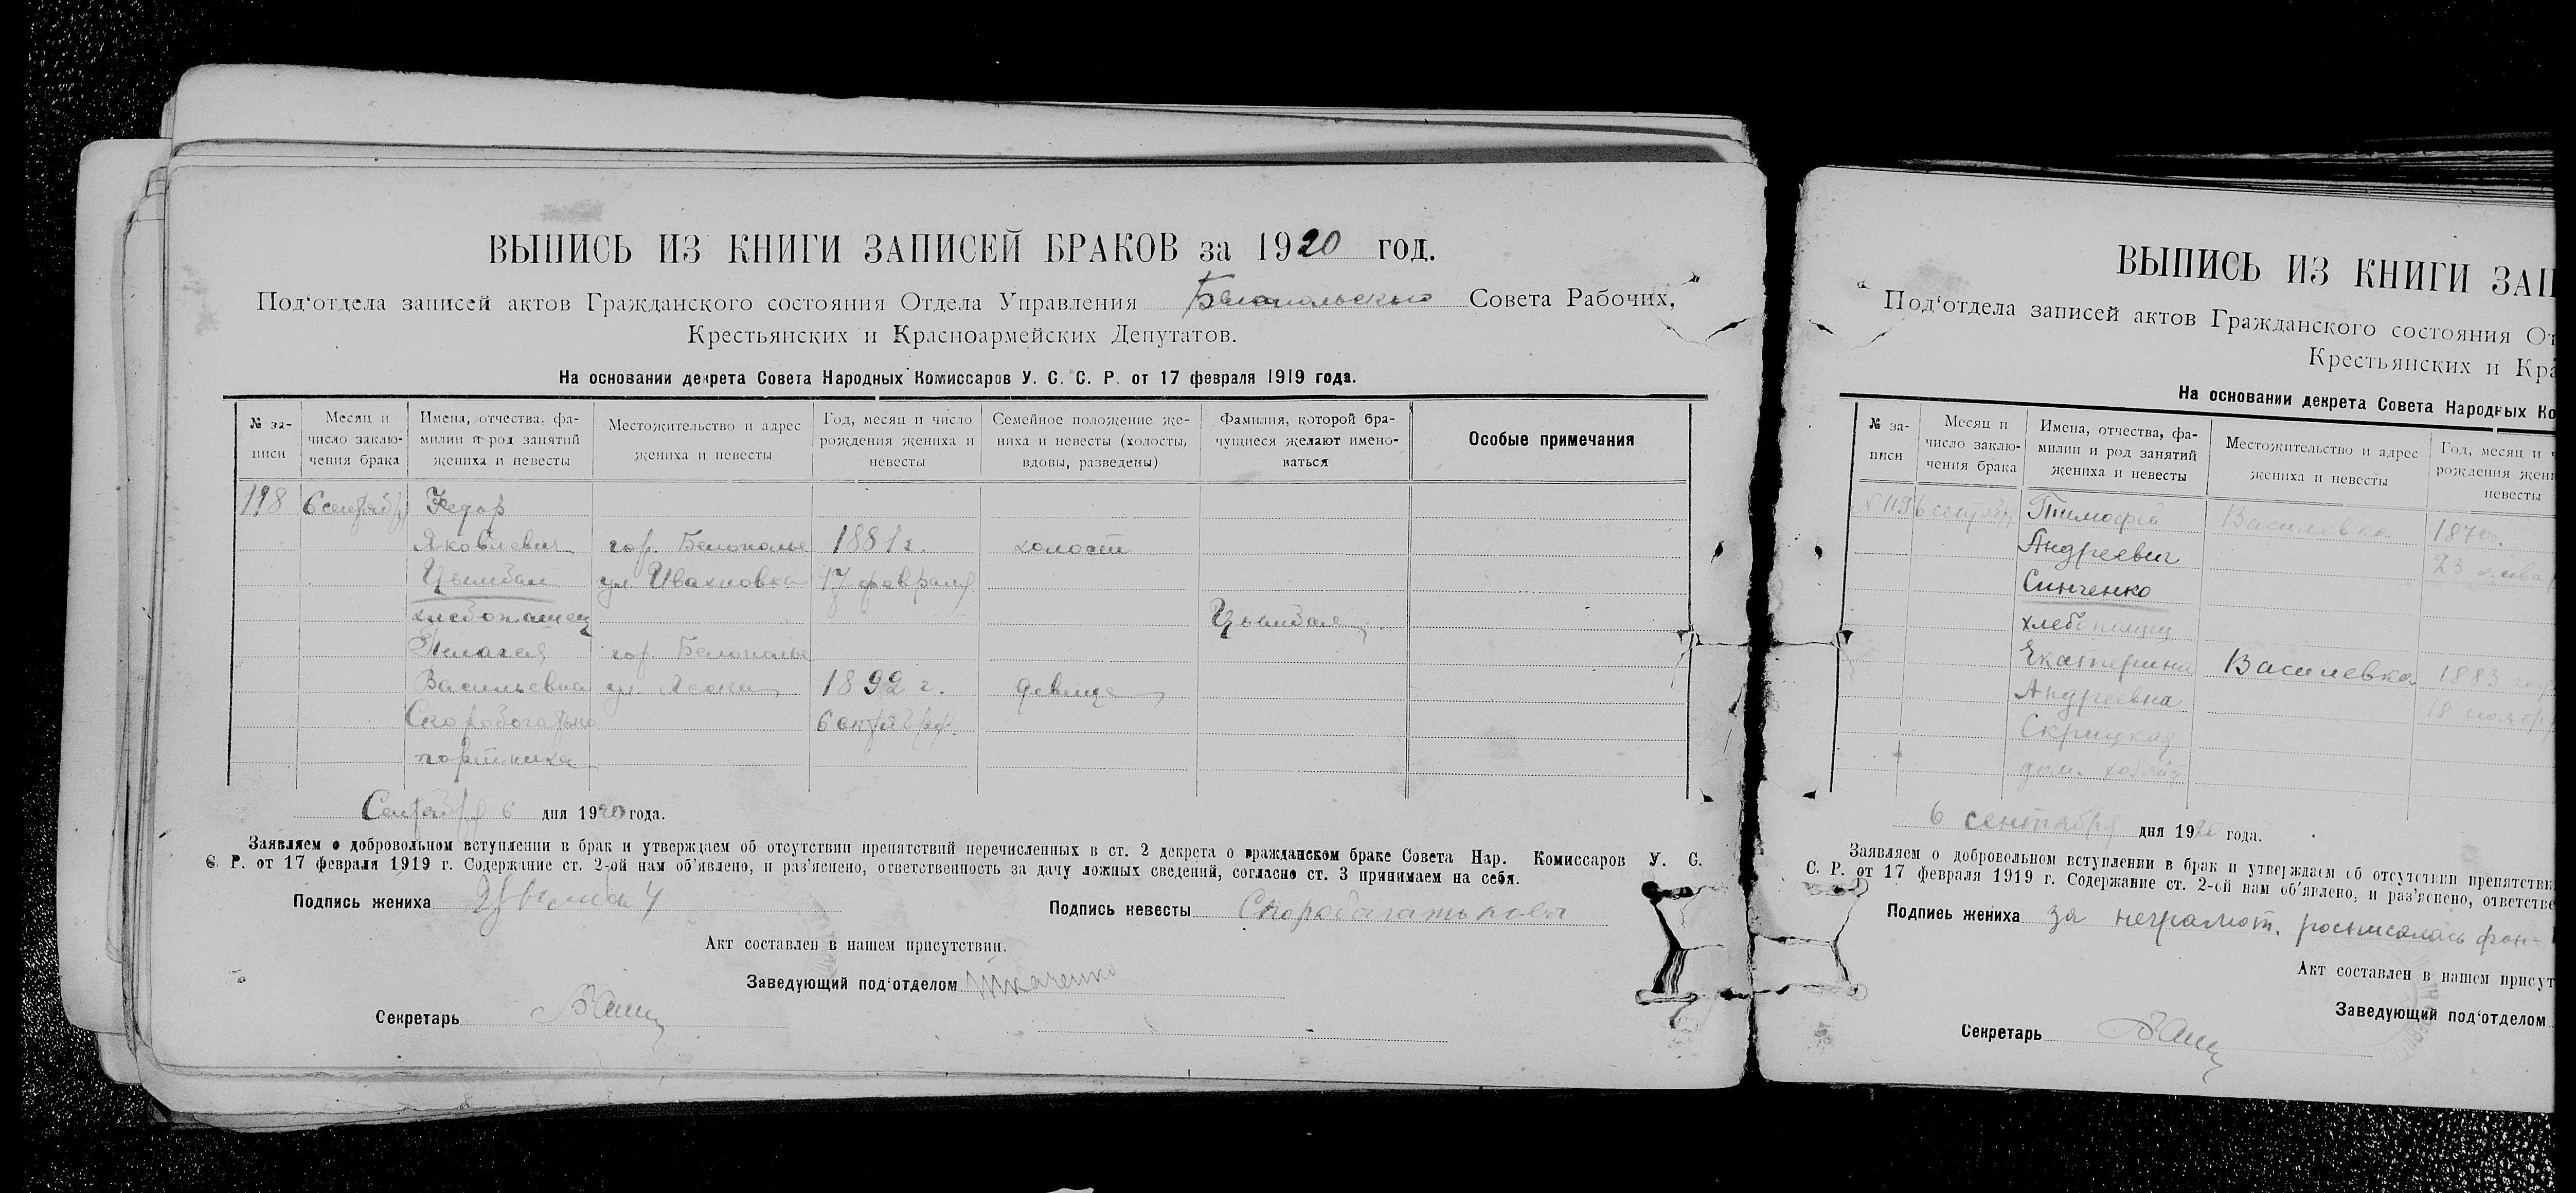 ВЫПИСЬ ИЗ КНИГИ ЗАПИСЕЙ БРАКОВ за 1920 год.
Под‘отдела записей актов Гражданского состояния Отдела Управления Белопольского Совета Рабочих,
Крестьянских и Красноармейских Депутатов.
На основании декрета Совета Народных Комиссаров У. С. С. Р. от 17 февраля 1919 года.
№ за-
писи
Месяц и
число заклю-
чения брака
Имена, отчества, фа-
милии и род занятий
жениха и невесты
Местожительство и адрес
жениха и невесты
Год, месяц и число
рождения жениха и
невесты
Семейное положение же-
ниха и невесты (холосты,
вдовы, разведены)
Фамилия, которой бра-
чущиеся желают имено-
ваться
Особые примечания
198 6 сентябр Федор
Яковлевич гор. Белополье 1881 г. холост
Цымбал ул. Ивахновка 17 февраля
хлебопашец Цымбал
Пелагея гор. Белополье
Васильевна ул. 1892 г. девица
Скоробогатько 6 октября
портниха
Сентября 6 дня 1920 года.
Заявляем о добровольном вступлении в брак и утверждаем об отсутствии препятствий перечисленных в ст. 2 декрета о гражданском браке Совета Нар. Комиссаров У. С.
С. Р. от 17 февраля 1919 г. Содержание ст. 2-ой нам об’явлено, и раз’яснено, ответственность за дачу ложных сведений, согласно ст. 3 принимаем на себя.
Подпись жениха
Подпись невесты Скоробагатькова
Акт составлен в нашем присутствии.
Заведующий под‘отделом Ткаченко
Секретарь
ВЫПИСЬ ИЗ КНИГИ ЗАП
Под‘отдела записей актов Гражданского состояния От
Крестьянских и Кра
На основании декрета Совета Народных Ко
№ за-
писи
Месяц и
число заклю-
чения брака
Имена, отчества, фа-
милии и род занятий
жениха и невесты
Местожительство и адрес
жениха и невесты
Год, месяц и ч
рождения жени
невесты
№ 119 6 сентября Тимофей Василевка 1870 г.
Андреевич 23 января
Синченко
хлебопашец
Екатерина Василевка 1883 года
Андреевна 18 ноября
Скрицкая
дом. хозяйка
6 сентября дня 1920 года.
Заявляем о добровольном вступлении в брак и утверждаем об отсутствии препятстви
С. Р. от 17 февраля 1919 г. Содержание ст. 2-ой нам об’явлено, и раз’яснено, ответстве
Подпись жениха за неграмот. росписалась
Акт составлен в нашем присут
Заведующий под‘отделом
Секретарь